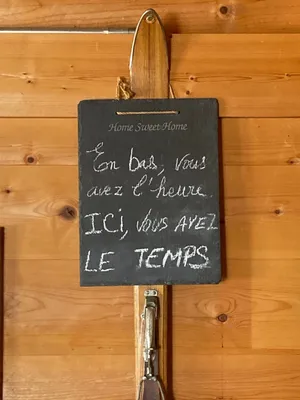 Home Sweet Home
En bas, vous
avez l'heure
ICI, VOUS AVEZ
LE TEMPS